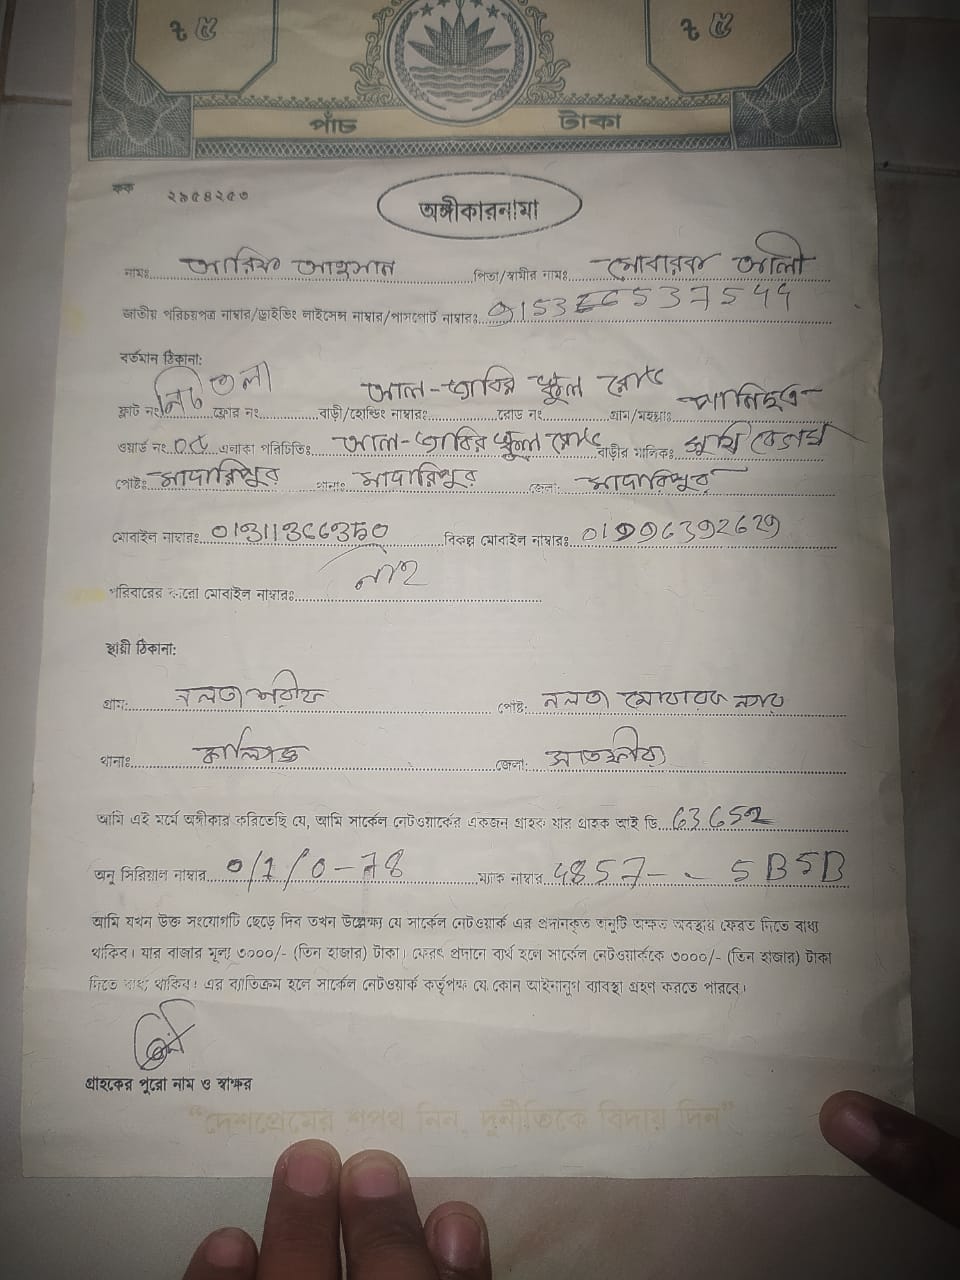 ৳ ৫ ৳ ৫
পাঁচ টাকা
কক ২৯৫৪২৫৩
অঙ্গীকারনামা
নামঃ আরিফ আহসান পিতা/স্বামীর নামঃ মোবারক আলী
জাতীয় পরিচয়পত্র নাম্বার/ড্রাইভিং লাইসেন্স নাম্বার/পাসপোর্ট নাম্বারঃ
বর্তমান ঠিকানা:
ফ্লাট নং নিচ তলা ফ্লোর নং বাড়ী/হোল্ডিং নাম্বারঃ আল-জাবির স্কুল রোড রোড নং গ্রাম/মহল্লাঃ পানিছত্র
ওয়ার্ড নং ০৫ এলাকা পরিচিতিঃ আল-জাবির স্কুল রোড বাড়ীর মালিকঃ
পোষ্টঃ মাদারিপুর থানাঃ মাদারিপুর জেলাঃ মাদারিপুর
মোবাইল নাম্বারঃ বিকল্প মোবাইল নাম্বারঃ
পরিবারের কারো মোবাইল নাম্বারঃ নাই
স্থায়ী ঠিকানা:
গ্রাম: নলতা শরীফ পোষ্ট: নলতা মোবারক নগর
থানাঃ কালিগঞ্জ জেলা: সাতক্ষীরা
আমি এই মর্মে অঙ্গীকার করিতেছি যে, আমি সার্কেল নেটওয়ার্কের একজন গ্রাহক যার গ্রাহক আই ডি 63652
অনু সিরিয়াল নাম্বার 0/1/0-78 ম্যাক নাম্বার 4857-- 5B5B
আমি যখন উক্ত সংযোগটি ছেড়ে দিব তখন উল্লেক্ষ্য যে সার্কেল নেটওয়ার্ক এর প্রদানকৃত অনুটি অক্ষত অবস্থায় ফেরত দিতে বাধ্য
থাকিব। যার বাজার মূল্য ৩০০০/- (তিন হাজার) টাকা। ফেরৎ প্রদানে ব্যর্থ হলে সার্কেল নেটওয়ার্ককে ৩০০০/- (তিন হাজার) টাকা
দিতে বাধ্য থাকিব। এর ব্যতিক্রম হলে সার্কেল নেটওয়ার্ক কর্তৃপক্ষ যে কোন আইনানুগ ব্যবস্থা গ্রহণ করতে পারবে।
গ্রাহকের পুরো নাম ও স্বাক্ষর
“দেশপ্রেমের শপথ নিন, দুর্নীতিকে বিদায় দিন”